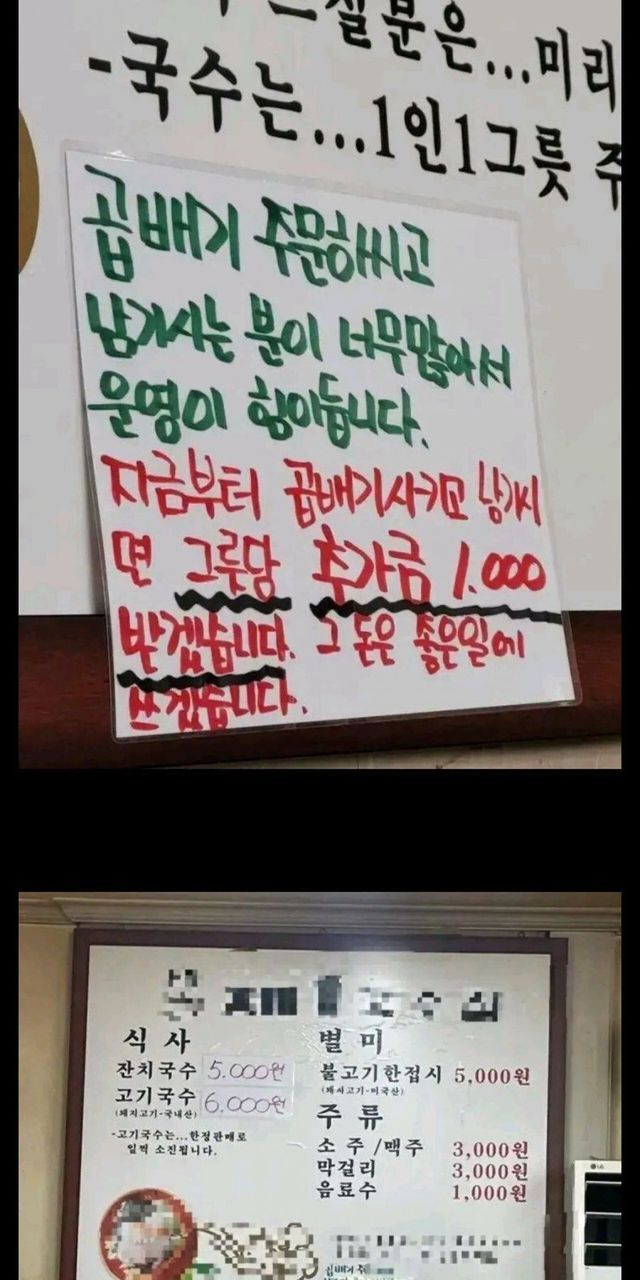 질문은...미리
-국수는...1인1그릇
곱배기 주문하시고
남기시는 분이 너무많아서
운영이 힘이듭니다.
지금부터 곱배기시키고 남기시
면 그릇당 추가금 1.000
받겠습니다. 그 돈은 좋은일에
쓰겠습니다.
식사
잔치국수 5.000원
고기국수 6.000원
(돼지고기-국내산)
-고기국수는...한정판매로
일찍 소진됩니다.
별미
불고기한접시 5,000원
(돼지고기-미국산)
주류
소주/맥주 3,000원
막걸리 3,000원
음료수 1,000원
곱배기